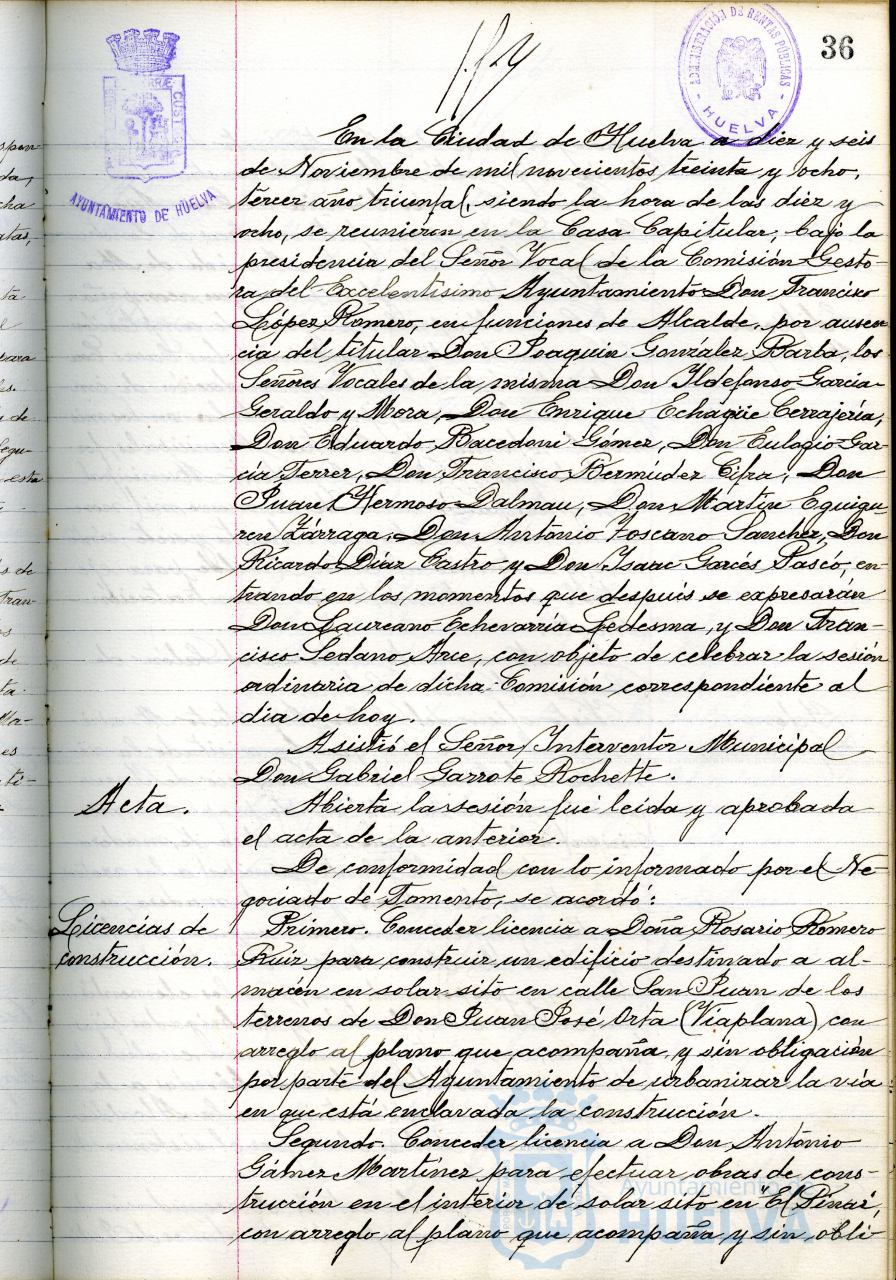 36
ADMINISTRACIÓN DE RENTAS PÚBLICAS
- HUELVA -
AYUNTAMIENTO DE HUELVA
En la Ciudad de Huelva a diez y seis
de Noviembre de mil novecientos treinta y ocho,
tercer año triunfal, siendo la hora de las diez y
ocho, se reunieron en la Casa Capitular, bajo la
presidencia del Señor Vocal de la Comisión Gesto-
ra del Excelentísimo Ayuntamiento Don Francisco
López Romero, en funciones de Alcalde, por ausen-
cia del titular Don Joaquin González Barba, los
Señores Vocales de la misma Don Ildefonso Garcia-
Geraldo y Mora, Don Enrique Echagüe Cerrajería,
Don Eduardo Bacedoni Gómez, Don Eulogio Gar-
cía Ferrer, Don Francisco Bermúdez Cifra, Don
Juan Hermoso Dalmau, Don Martín Eguigu-
ren Zárraga, Don Antonio Toscano Sanchez, Don
Ricardo Díaz Castro y Don Isaac Garcés Pascó, en-
trando en los momentos que después se expresarán
Don Laureano Echevarría Ledesma, y Don Fran-
cisco Sedano Arce, con objeto de celebrar la sesión
ordinaria de dicha Comisión correspondiente al
dia de hoy.
Asistió el Señor Interventor Municipal
Don Gabriel Garrote Rochette.
Acta.
Abierta la sesión fué leida y aprobada
el acta de la anterior.
De conformidad con lo informado por el Ne-
gociado de Fomento, se acordó:
Licencias de
construcción.
Primero. Conceder licencia a Doña Rosario Romero
Ruiz para construir un edificio destinado a al-
macén en solar sito en calle San Juan de los
terrenos de Don Juan José Orta (Viaplana) con
arreglo al plano que acompaña, y sin obligación
por parte del Ayuntamiento de urbanizar la vía
en que está enclavada la construcción.
Segundo. Conceder licencia a Don Antonio
Gámez Martínez para efectuar obras de cons-
trucción en el interior de solar sito en "El Pinar,
con arreglo al plano que acompaña y sin obli-
Ayuntamiento de
HUELVA